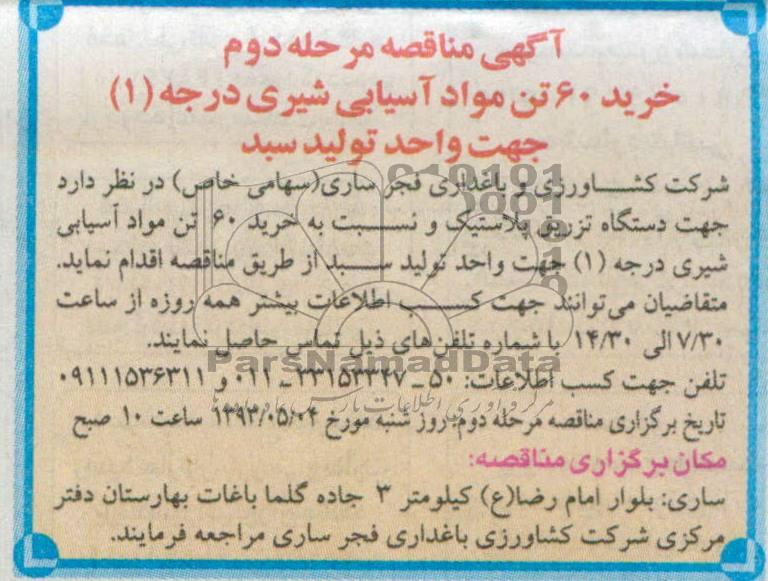 آگهی مناقصه مرحله دوم
خرید ۶۰ تن مواد آسیابی شیری درجه (۱)
جهت واحد تولید سبد
شرکت کشاورزی و باغداری فجر ساری(سهامی خاص) در نظر دارد
جهت دستگاه تزریق پلاستیک و نسبت به خرید ۶۰ تن مواد آسیابی
شیری درجه (۱) جهت واحد تولید سبد از طریق مناقصه اقدام نماید.
متقاضیان می‌توانند جهت کسب اطلاعات بیشتر همه روزه از ساعت
۷/۳۰ الی ۱۴/۳۰ با شماره تلفن‌های ذیل تماس حاصل نمایند.
تلفن جهت کسب اطلاعات: ۵۰ ـ ۳۳۱۵۳۳۴۷ ـ ۰۱۱ و ۰۹۱۱۱۵۳۶۳۱۱
تاریخ برگزاری مناقصه مرحله دوم: روز شنبه مورخ ۱۳۹۳/۰۵/۰۴ ساعت ۱۰ صبح
مکان برگزاری مناقصه:
ساری: بلوار امام رضا(ع) کیلومتر ۳ جاده گلما باغات بهارستان دفتر
مرکزی شرکت کشاورزی باغداری فجر ساری مراجعه فرمایند.
ParsNamadData